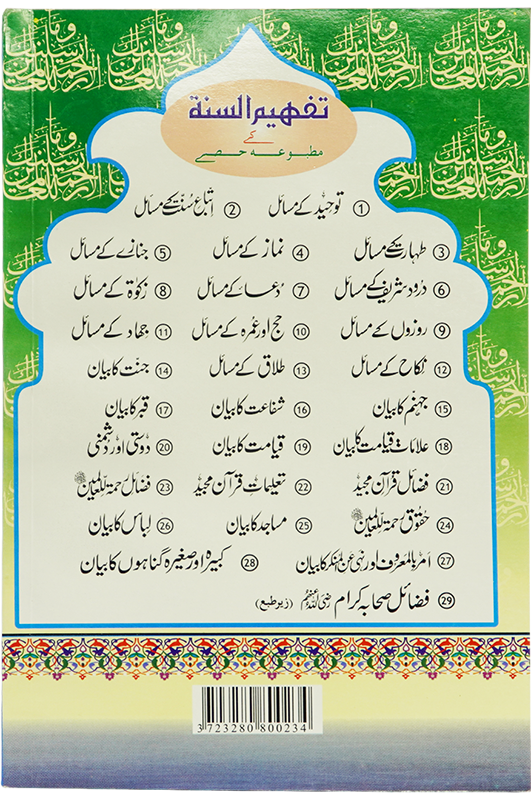 تفہیم السنۃ
کے
مطبوعہ حصے
① توحید کے مسائل ② اتباع سنت کے مسائل
③ طہارت کے مسائل ④ نماز کے مسائل ⑤ جنازے کے مسائل
⑥ درود شریف کے مسائل ⑦ دعا کے مسائل ⑧ زکوٰۃ کے مسائل
⑨ روزوں کے مسائل ⑩ حج اور عمرہ کے مسائل ⑪ جہاد کے مسائل
⑫ نکاح کے مسائل ⑬ طلاق کے مسائل ⑭ جنت کا بیان
⑮ جہنم کا بیان ⑯ شفاعت کا بیان ⑰ قبر کا بیان
⑱ علامات قیامت کا بیان ⑲ قیامت کا بیان ⑳ دوستی اور دشمنی
㉑ فضائل قرآن مجید ㉒ تعلیمات قرآن مجید ㉓ فضائل رحمۃ للعالمین ﷺ
㉔ حقوق رحمۃ للعالمین ﷺ ㉕ مساجد کا بیان ㉖ لباس کا بیان
㉗ امر بالمعروف اور نہی عن المنکر کا بیان ㉘ کبیرہ اور صغیرہ گناہوں کا بیان
㉙ فضائل صحابہ کرام رضی اللہ عنہم (زیر طبع)
3723280800234
وما ارسلنك الا رحمة للعالمين